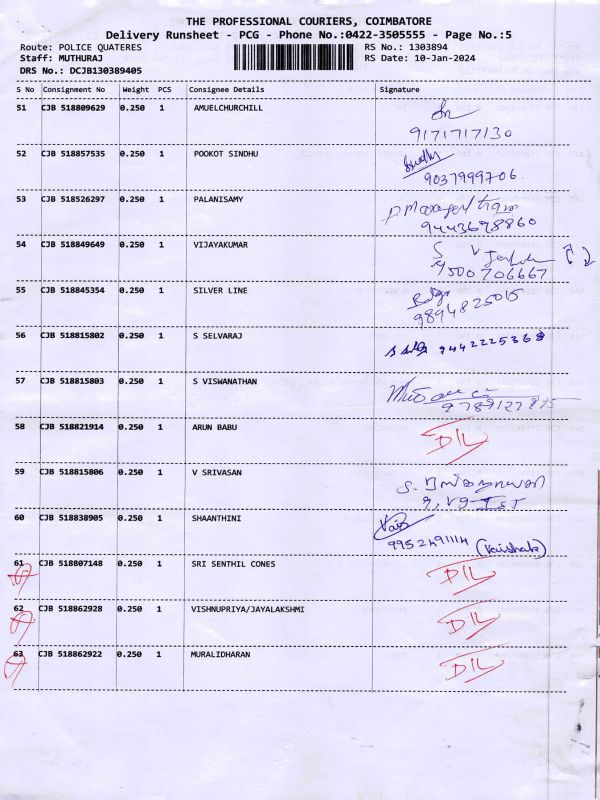 THE PROFESSIONAL COURIERS, COIMBATORE
Delivery Runsheet - PCG - Phone No.:0422-3505555 - Page No.:5
Route: POLICE QUATERES RS No.: 1303894
Staff: MUTHURAJ RS Date: 10-Jan-2024
DRS No.: DCJB130389405
S No Consignment No Weight PCS Consignee Details Signature
51 CJB 518809629 0.250 1 AMUELCHURCHILL
9171717130
52 CJB 518857535 0.250 1 POOKOT SINDHU
9037999706
53 CJB 518526297 0.250 1 PALANISAMY
9443698860
54 CJB 518849649 0.250 1 VIJAYAKUMAR
9500706667
55 CJB 518845354 0.250 1 SILVER LINE
9894825015
56 CJB 518815802 0.250 1 S SELVARAJ
9442225368
57 CJB 518815803 0.250 1 S VISWANATHAN
9789127875
58 CJB 518821914 0.250 1 ARUN BABU
D/L
59 CJB 518815806 0.250 1 V SRIVASAN
60 CJB 518838905 0.250 1 SHAANTHINI
Vais
9952491114 (Vaishak)
61 CJB 518807148 0.250 1 SRI SENTHIL CONES
D/L
62 CJB 518862928 0.250 1 VISHNUPRIYA/JAYALAKSHMI
D/L
63 CJB 518862922 0.250 1 MURALIDHARAN
D/L